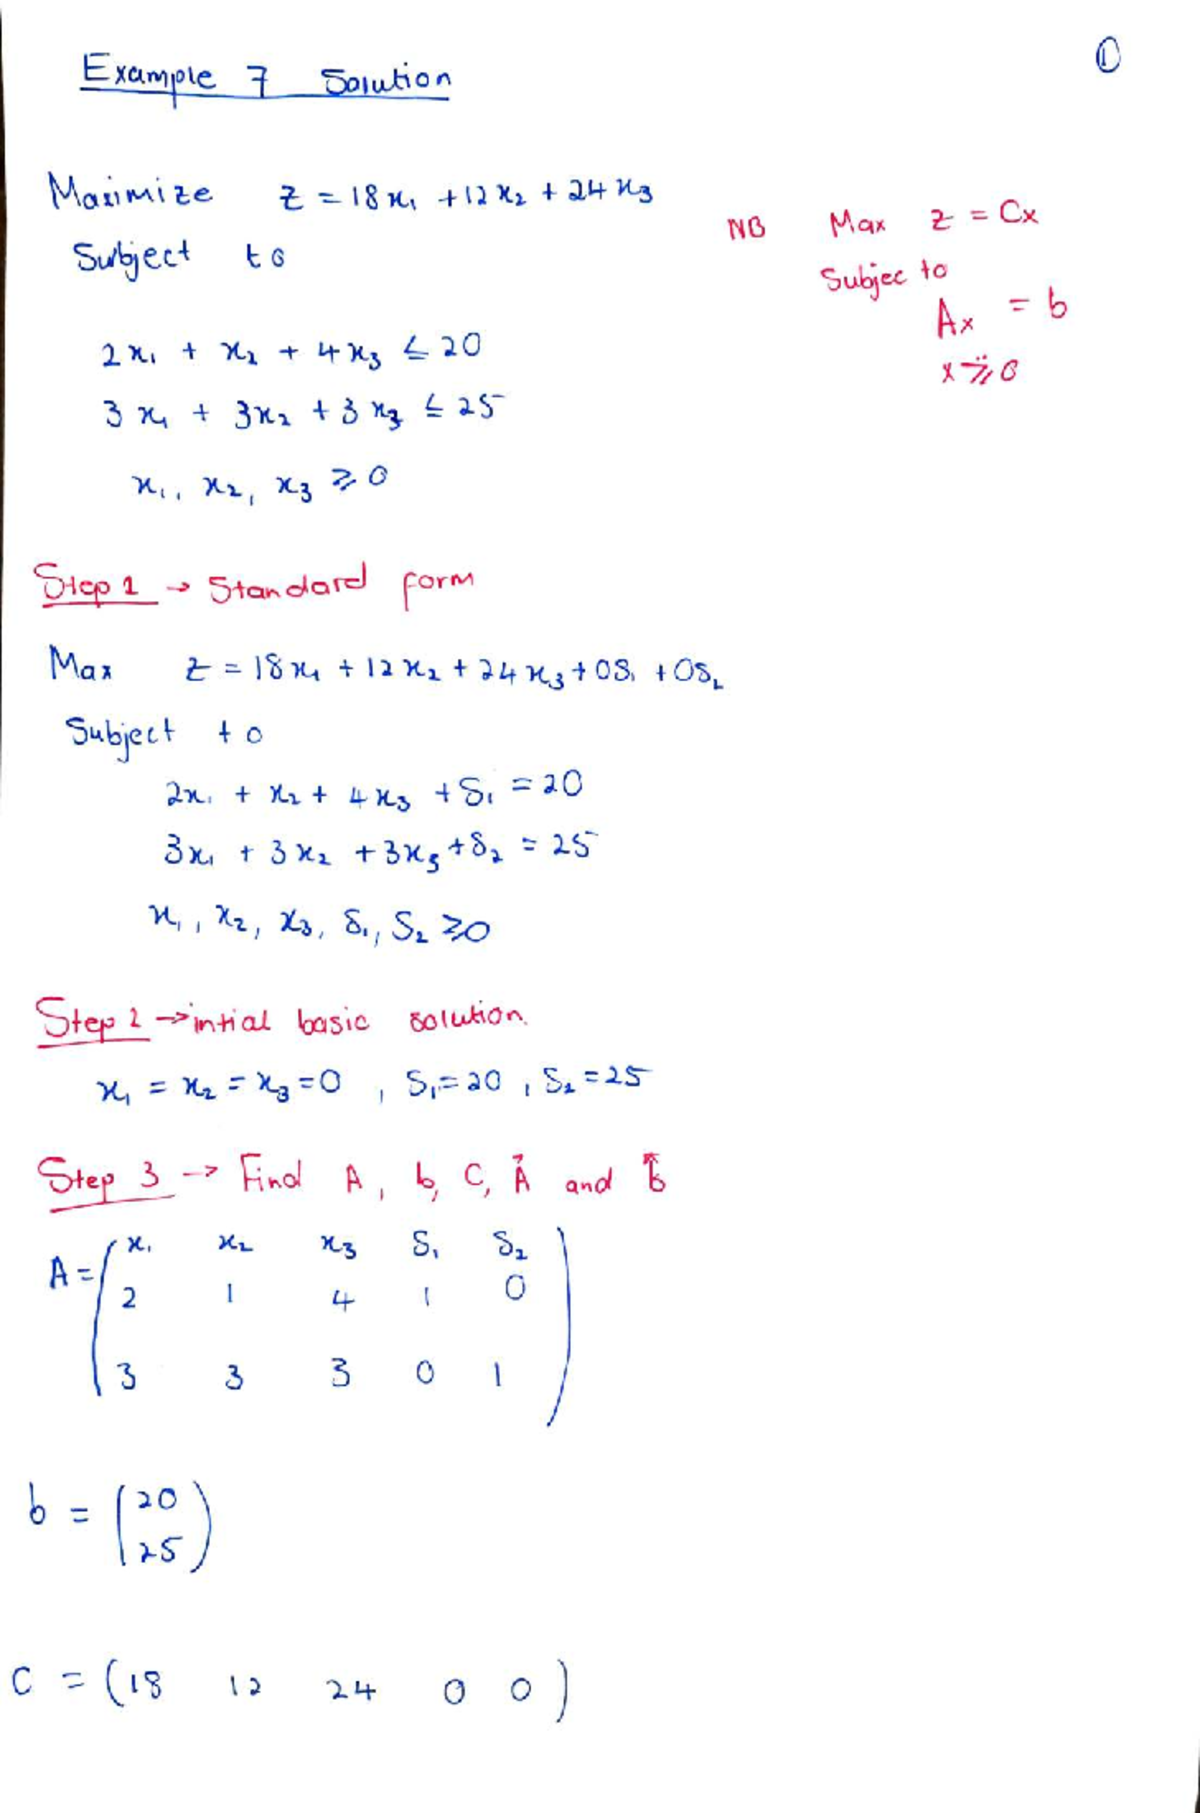 Example 7 Solution
①
Maximize z = 18x₁ + 12x₂ + 24x₃
Subject to
2x₁ + x₂ + 4x₃ ≤ 20
3x₁ + 3x₂ + 3x₃ ≤ 25
x₁, x₂, x₃ ≥ 0
NB Max z = Cx
Subjec to
Ax = b
x ≥ 0
Step 1 → Standard form
Max z = 18x₁ + 12x₂ + 24x₃ + 0S₁ + 0S₂
Subject to
2x₁ + x₂ + 4x₃ + S₁ = 20
3x₁ + 3x₂ + 3x₃ + S₂ = 25
x₁, x₂, x₃, S₁, S₂ ≥ 0
Step 2 → intial basic solution.
x₁ = x₂ = x₃ = 0 , S₁ = 20 , S₂ = 25
Step 3 → Find A, b, C, Ā and b̄
x₁ x₂ x₃ S₁ S₂
A = ( 2 1 4 1 0
3 3 3 0 1 )
b = ( 20
25 )
C = (18 12 24 0 0)